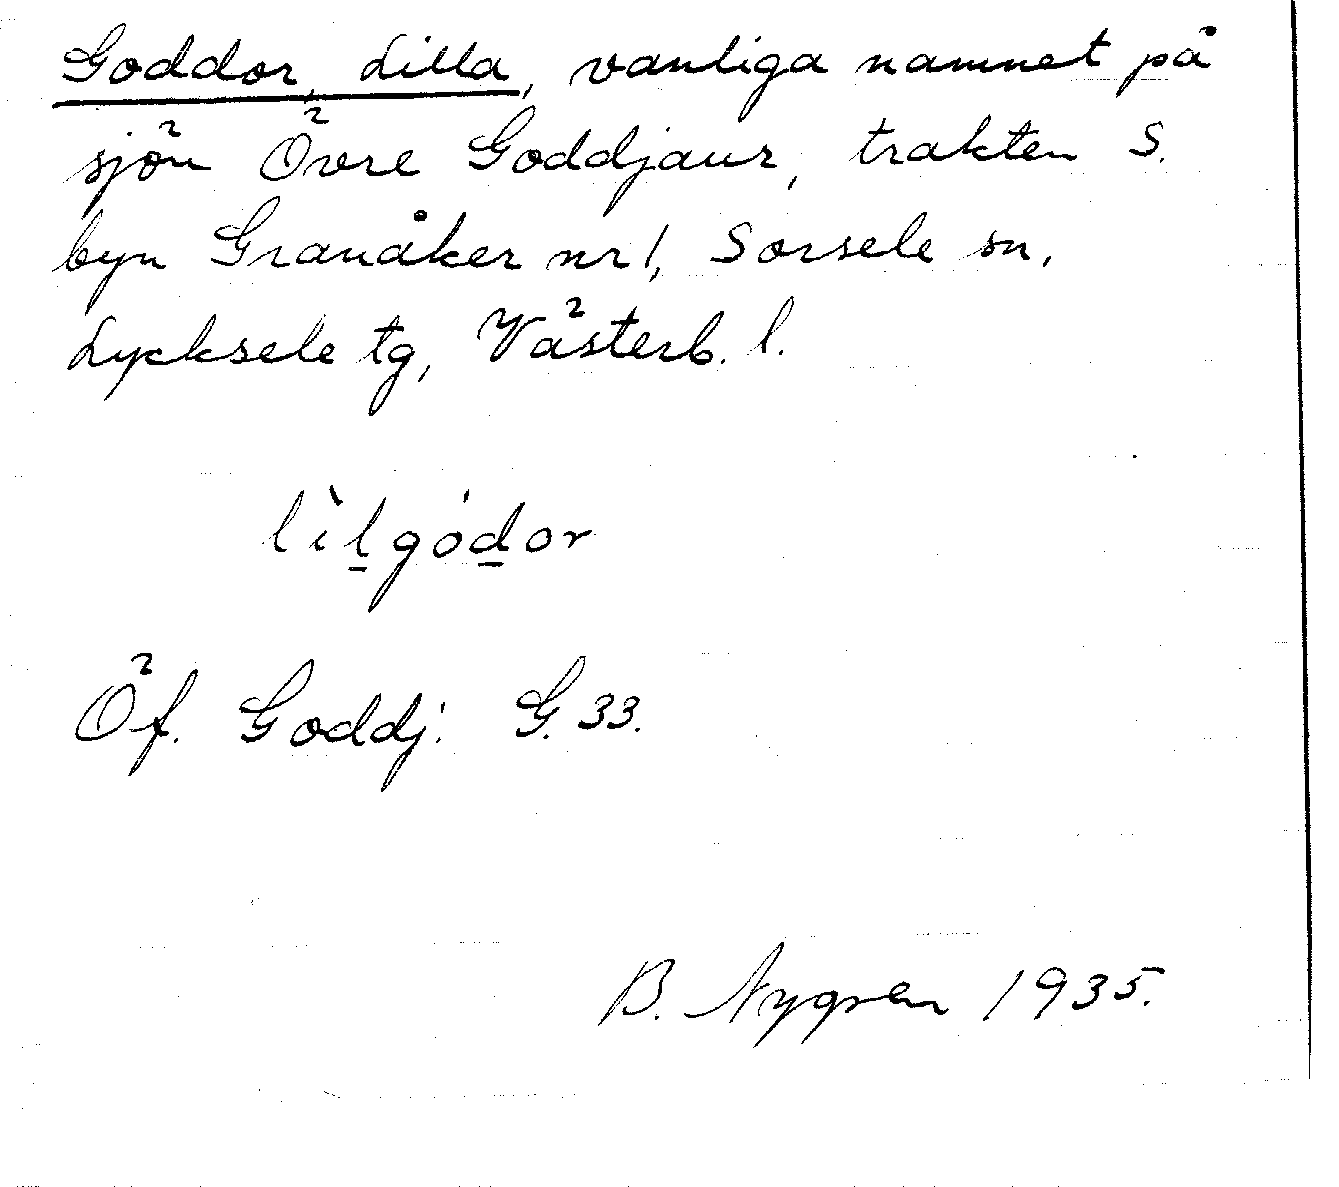 Goddor, Lilla, vanliga namnet på
sjön Övre Goddjaur, trakten S.
byn Granåker nr 1, Sorsele sn,
Lycksele tg, Västerb. l.
lìḻgóḏor
Öf. Goddj. G. 33.
B. Nygren 1935.